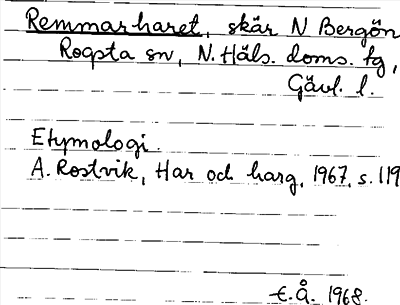 Remmarharet, skär N Bergön
Rogsta sn, N. Häls. doms. tg,
Gävl. l.
Etymologi.
A. Rostvik, Har och harg, 1967, s. 119
E.Å. 1968.